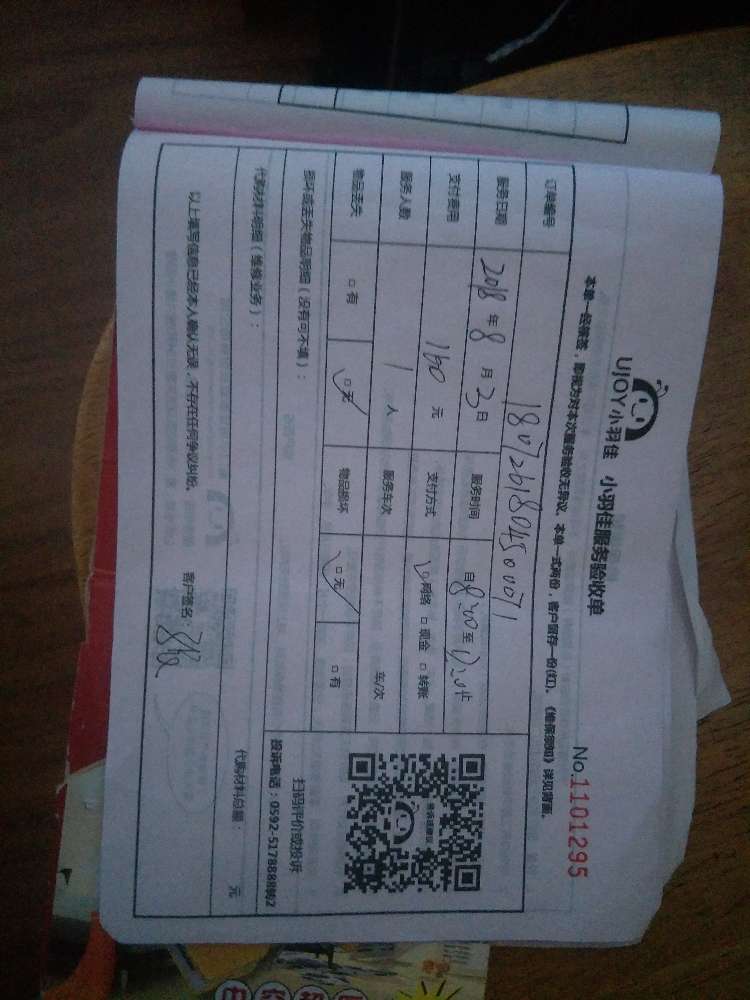 UJOY小羽佳 小羽佳服务验收单
No.1101295
本单一经播签，即视为对本次服务验收无异议，本单一式两份，客户留存一份(红)、《维保须知》详见背面。
订单编号 180726180450071
服务日期 2018 年 8 月 3 日 服务时间 自 8:00 至 12:00 止
支付费用 160 元 支付方式 ✓□网络 □现金 □转账
服务人数 1 人 服务车次 车/次
物品丢失 □有 □无✓ 物品损坏 □无✓ □有
扫码评价或投诉
投诉电话：0592-5178888转2
损坏或丢失物品明细（没有可不填）：
代购材料明细（维修业务）：
代购材料总额： 元
以上填写信息已经本人确认无误，不存在任何争议纠纷。
客户签名：